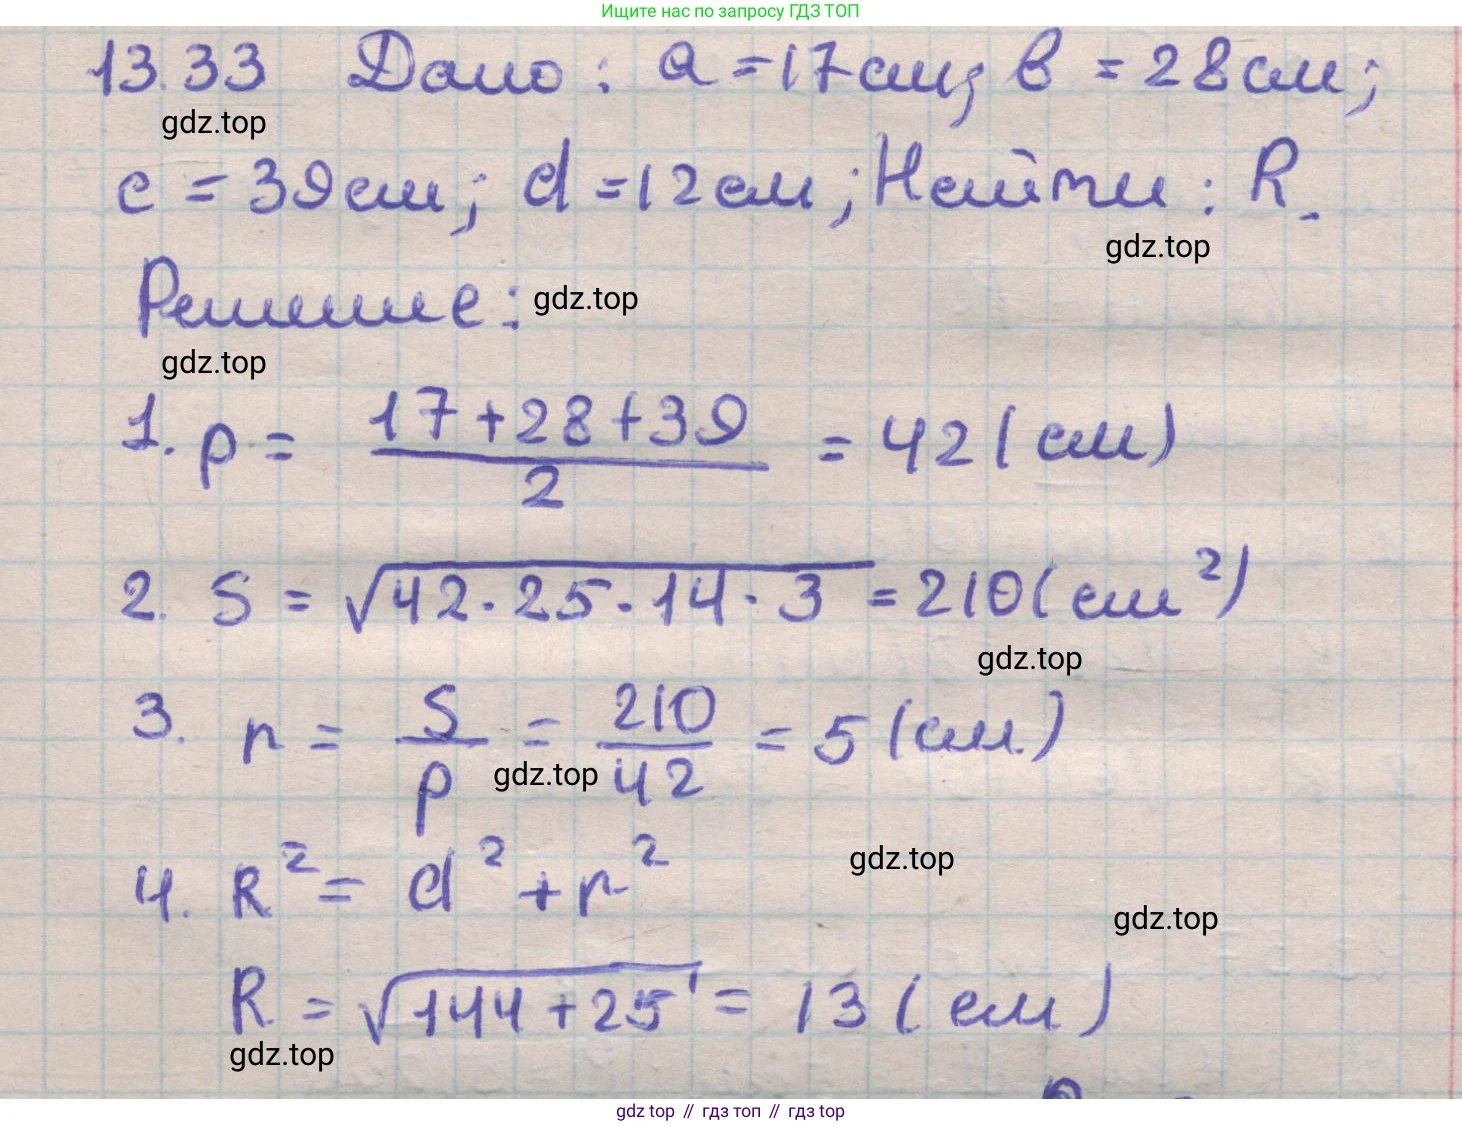 Ищите нас по запросу ГДЗ ТОП
13.33 Дано: a = 17 см; b = 28 см;
gdz.top
c = 39 см; d = 12 см; Найти: R.
gdz.top
Решение: gdz.top
gdz.top
1. p = (17 + 28 + 39) / 2 = 42 (см)
2. S = √(42 · 25 · 14 · 3) = 210 (см²)
gdz.top
3. r = S / p = 210 / 42 = 5 (см)
gdz.top
4. R² = d² + r²
gdz.top
gdz.top
R = √(144 + 25) = 13 (см)
gdz.top
gdz top // гдз топ // гдз top